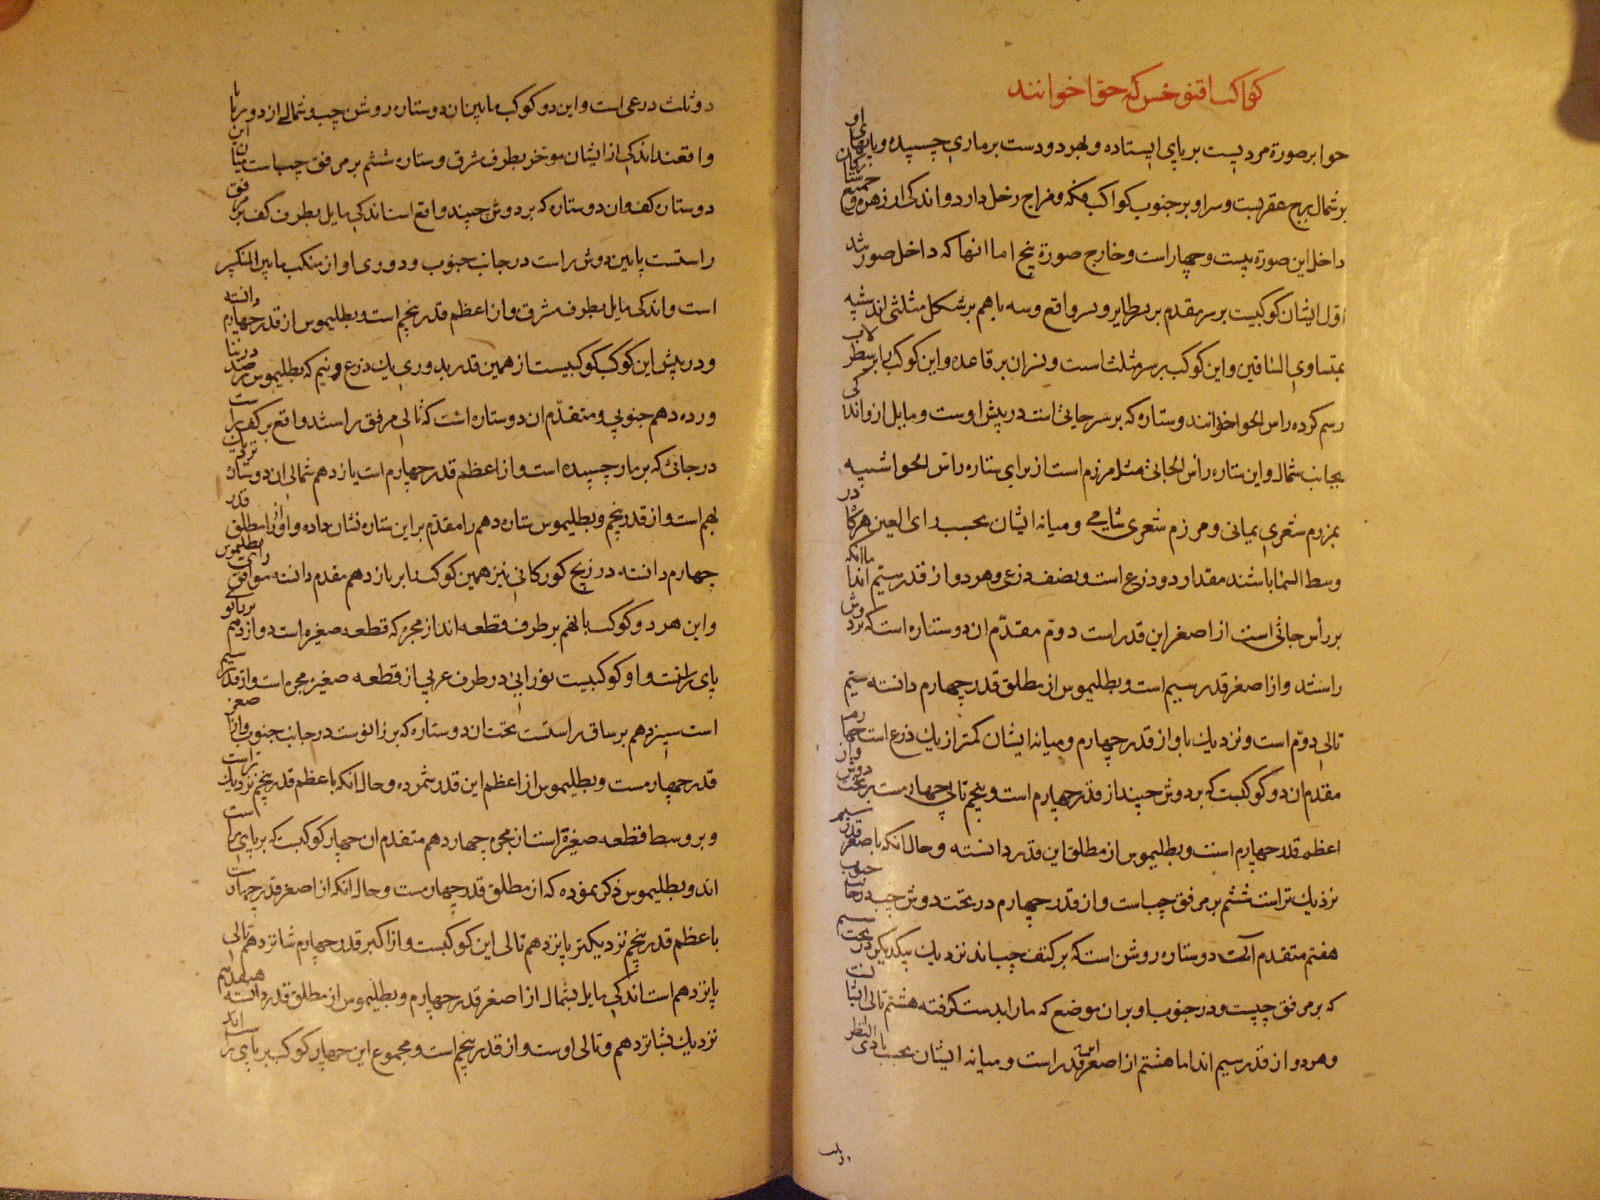 کواکب اقنوخس که حوا خوانند
حوا بر صورة مردیست بر پای ایستاده و بهر دو دست بر ماری چسپیده و پایهای او
بر شمال برج عقربست و سر او بر جنوب کواکب فکه و مزاج زحل دارد و اندکی از زهره و جمیع
داخل این صورة بیست و چهار است و خارج صورة پنج اما آنها که داخل صورتند
اول ایشان کوکبیست بر سر مقدم بر نسر طایر و نسر واقع و سه با هم بر شکل مثلثی اند شبیه
بمتساوی الساقین و این کوکب بر سر مثلث است و نسران بر قاعده و این کوکب را بر سطرلاب
رسم کرده راس الحوا خوانند و ستاره که بر سر جاثی است در پیش اوست و مایل ازو اندکی
بجانب شمال و این ستاره راس الجاثی مثل مرزم است از برای ستاره راس الحوا شبیه
بمرزم شعری یمانی و مرزم شعری شامی و میانه ایشان بحسب رای العین هرگاه در
وسط السما باشند مقدار دو ذرع است و نصف ذرع و هر دو از قدر سیم اند با آنکه
بر رأس جاثی است از اصغر این قدر است دوم مقدم آن دو ستاره است که بر دوش
راستند و از اصغر قدر سیم است و بطلیموس از مطلق قدر چهارم دانسته سیم
تالی دوم است و نزدیک باو از قدر چهارم و میانه ایشان کمتر از یک ذرع است چهارم
مقدم آن دو کوکبست که بر دوش چپند از قدر چهارم است و پنجم تالی چهارمست بر تحت دوش و از
اعظم قدر چهارم است و بطلیموس از مطلق این قدر دانسته و حال آنکه باصغر قدر سیم
نزدیک تر است ششم بر مرفق چپ است و از قدر چهارم در تحت دوش چپ در جانب جنوب
هفتم متقدم آن دو ستاره روشن است که بر کتف چپ اند نزدیک بیکدیگر در تحت
که بر مرفق چپست و در جنوب او بر آن موضع که مار را بدست گرفته هشتم تالی ایشا
و هر دو از قدر سیم اند اما هشتم از اصغر این قدر است و میانه ایشان بحسب بادی النظر
دو ثلث درعی است و این دو کوکب مابین آن دو ستاره روشن چپ و شمالی از دور
واقعند اندکی از ایشان موخر بطرف شرق و ستاره ششم بر مرفق چپ است میان این
دو ستاره کف و آن دو ستاره که بر دوش چپند واقع است اندکی مایل بطرف کف بر مرفق
راستست پایین دوش راست در جانب جنوب و دوری او از منکب مابین المنکبین
است و اندکی مایل بطرف مشرق و از اعظم قدر پنجم است و بطلیموس از قدر چهارم دانسته
و در پیش این کوکب کوکبیست از همین قدر بدوری یک ذرع و نیم که بطلیموس در رصد
ورده دهم جنوبی و متقدم آن دو ستاره است که تالی مرفق راستند واقع بر کف راست
در جائی که بر مار چسپیده است و از اعظم قدر چهارم است یازدهم شمالی آن دو ستاره
بهم است و از قدر پنجم و بطلیموس ستاره دهم را مقدم بر این ستاره نشان داده و او را از مطلق قدر
چهارم دانسته در زیج کورکانی نیز همین کوکب را بر یازدهم مقدم دانسته موافق رای بطلیموس
و این هر دو کوکب با نهم بر طرف قطعه اند از مجره که قطعه صغیره است دوازدهم بر زانو
پای راست و او کوکبیست نورانی در طرف غربی از قطعه صغیره مجره است و از قدر سیم
است سیزدهم بر ساق راستست تحت آن دو ستاره که بر زانوست در جانب جنوب و از اصغر
قدر چهارمست و بطلیموس از اعظم این قدر شمرده و حال آنکه باعظم قدر پنجم نزدیک تر است
و بر وسط قطعه صغیرة است از مجره چهاردهم متقدم آن چهار کوکبست که بر پای راست
اند و بطلیموس ذکر نموده که از مطلق قدر چهارمست و حال آنکه از اصغر قدر چهارمست
باعظم قدر پنجم نزدیکتر پانزدهم تالی این کوکبست و از اکبر قدر چهارم شانزدهم تالی
پانزدهم است اندکی مایل بشمال از اصغر قدر چهارم و بطلیموس از مطلق قدر دانسته هفدهم
نزدیک بشانزدهم و تالی اوست و از قدر پنجم است و مجموع این چهار کوکب بر پای راست اند